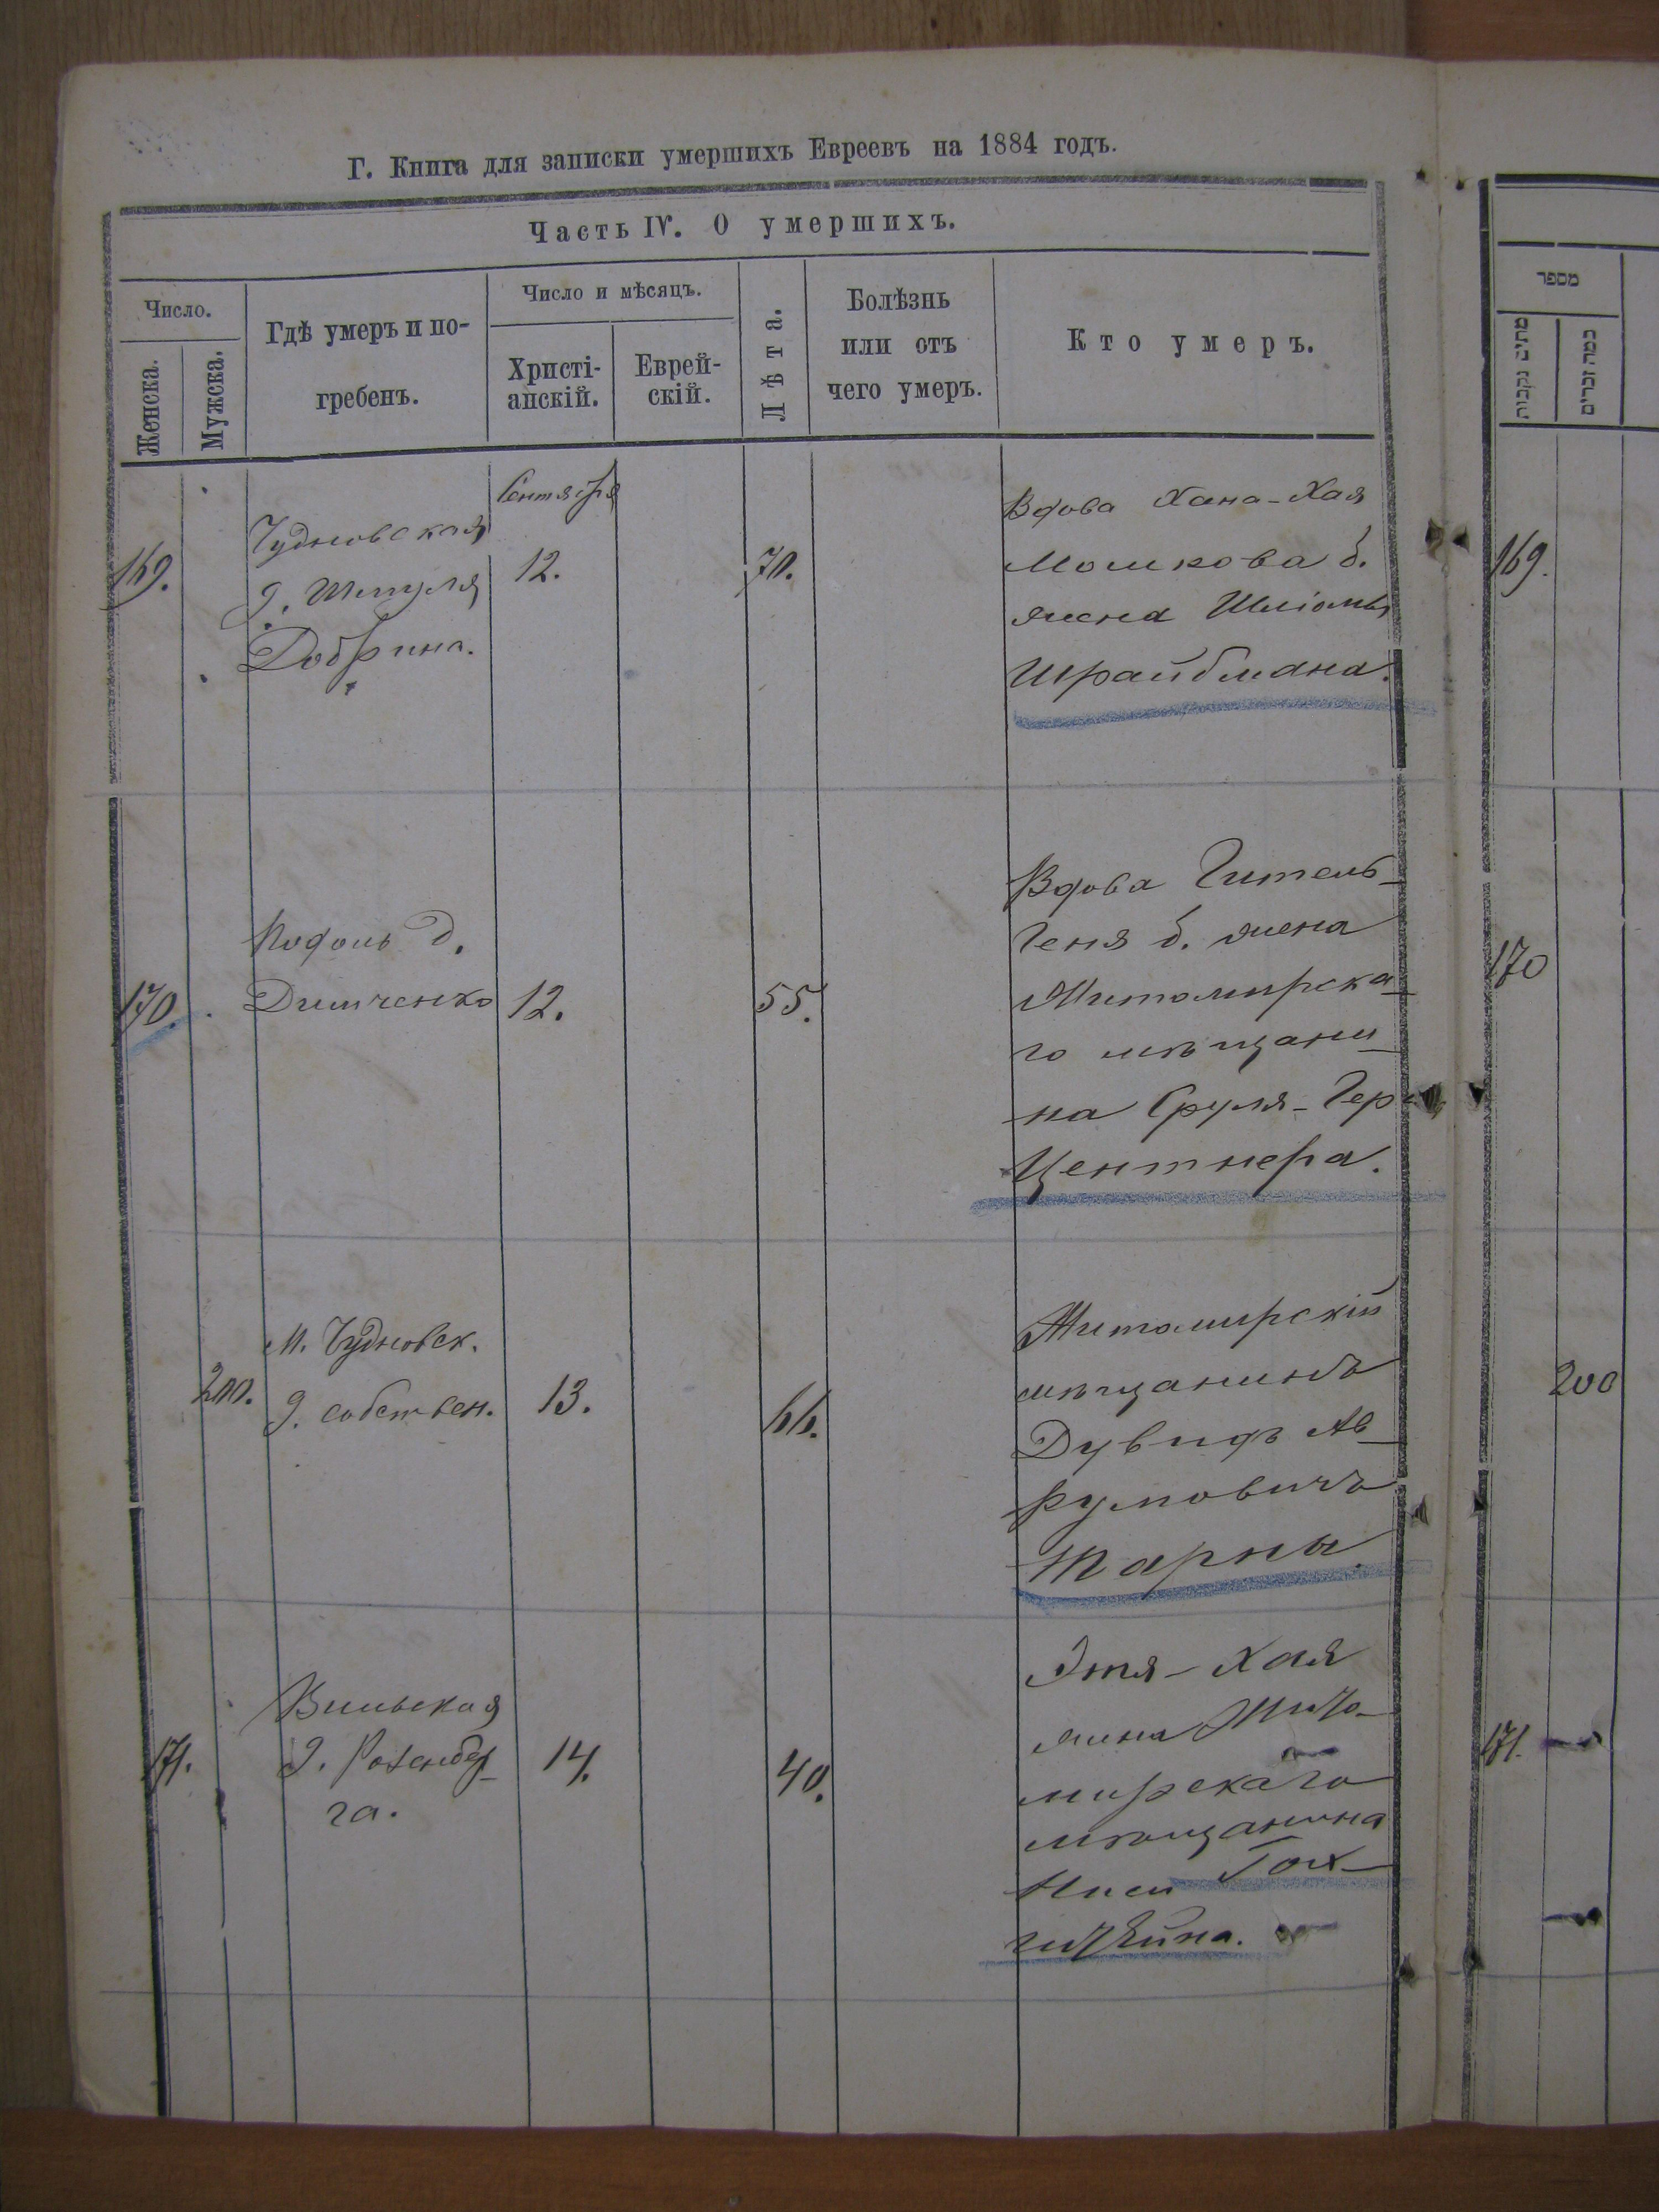 Г. Книга для записки умершихъ Евреевъ на 1884 годъ.
Часть IV. О умершихъ.
Число.
Женска.
Мужска.
Гдѣ умеръ и по-
гребенъ.
Число и мѣсяцъ.
Христі-
анскій.
Еврей-
скій.
Лѣта.
Болѣзнь
или отъ
чего умеръ.
Кто умеръ.
מספר
כמה זכרים
169.
Чудновская
д.
Добрина.
Сентября
12.
70.
Вдова Хана-Хая
Мошкова б.
жена Шліомы
Шрайбмана.
169.
170.
Подоль д.
Димченко
12.
55.
Вдова Гитель-
Геня б. жена
Житомирска-
го мѣщани-
на Сруля-Гер
Центнера.
170
200.
М. Чудновск.
д. собствен.
13.
66.
Житомирскій
мѣщанинъ
Дувидъ Ав-
румовичъ
Тарны.
200
171.
Вильская
д. Розенбер-
га.
14.
40.
Этя-Хая
жена Жито-
мирскаго
мѣщанина
171.